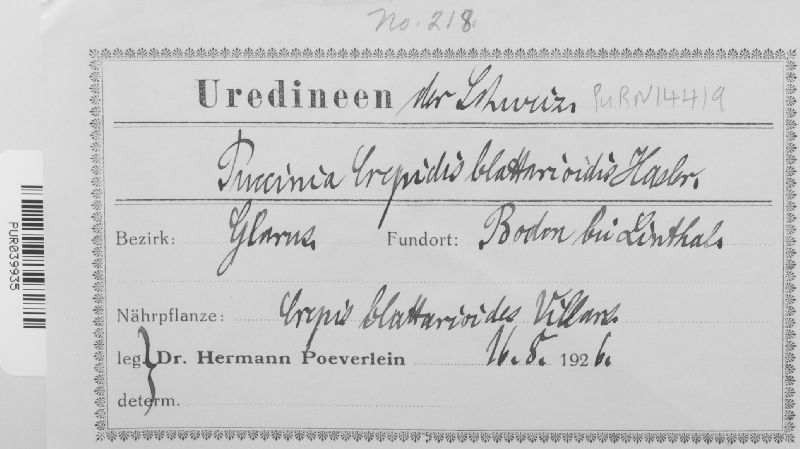 No. 218.
Uredineen der Schweiz. PURN14419
Puccinia Crepidis blattarioidis Hasler.
Bezirk: Glarus. Fundort: Boden bei Linthal.
Nährpflanze: Crepis blattarioides Villars.
leg. Dr. Hermann Poeverlein 16. 8. 1926.
determ.
PUR039935